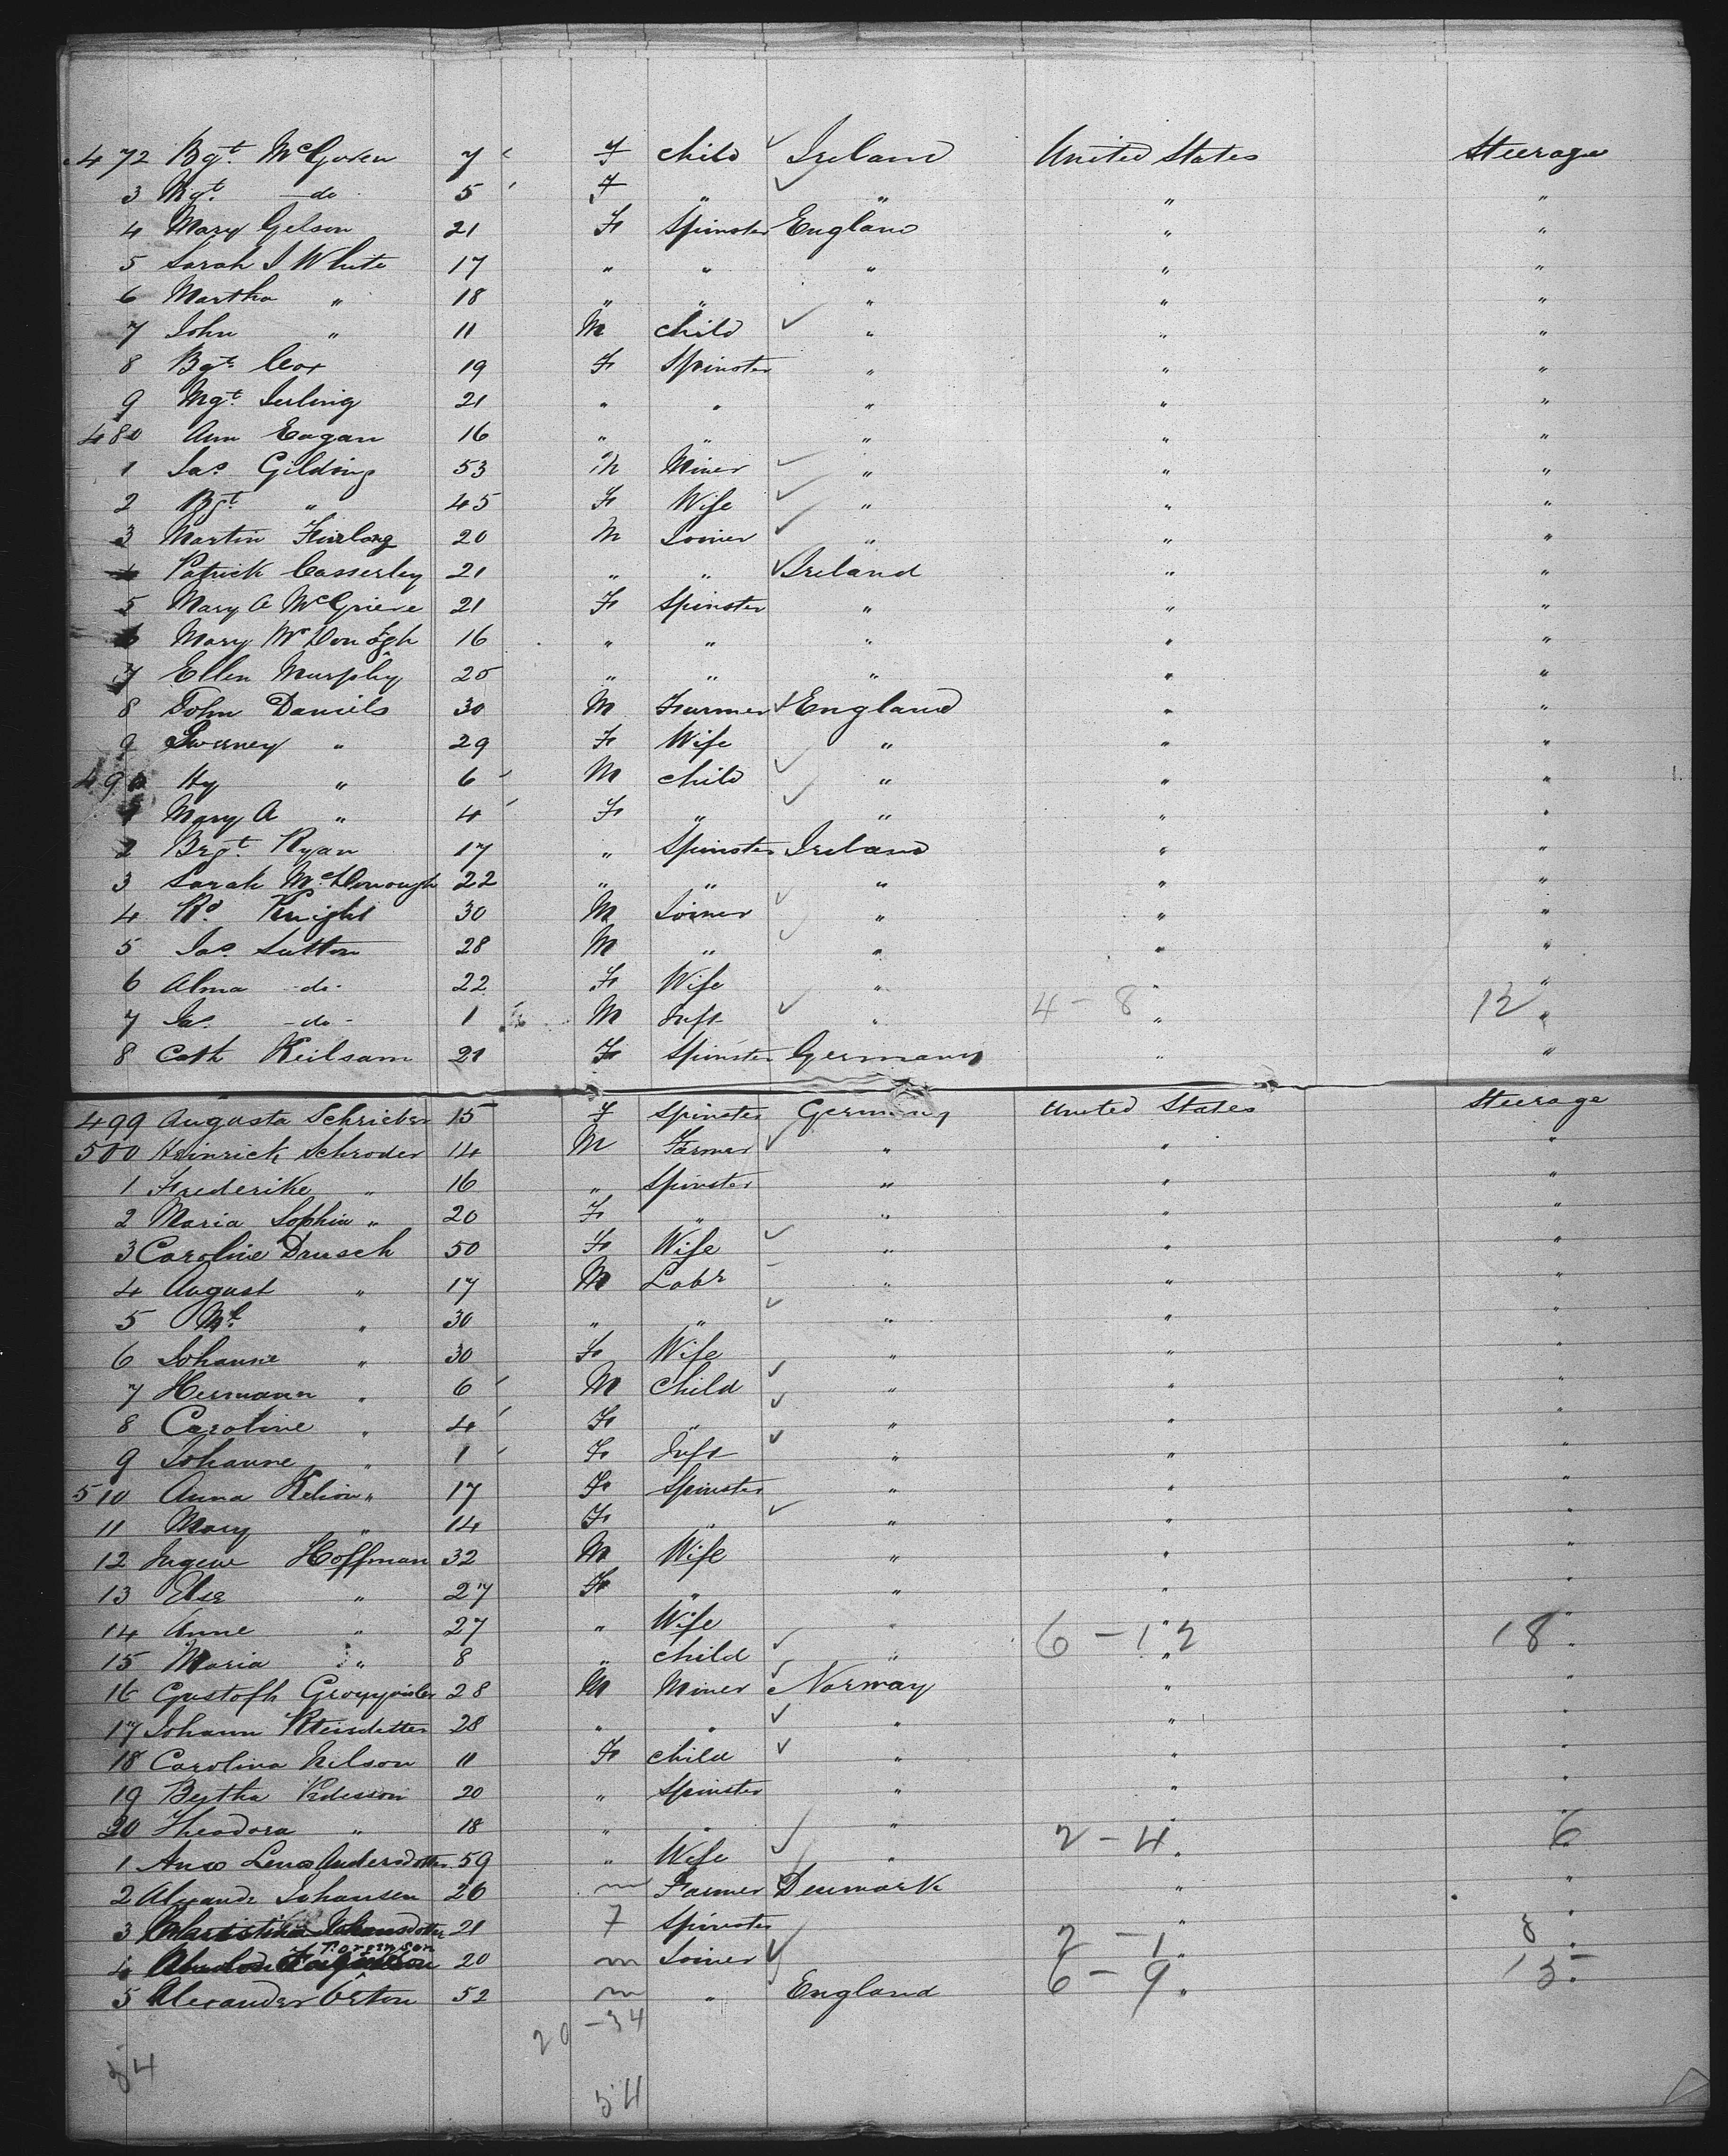 472 Bgt. McGoven 7 F child Ireland United States Steerage
3 Mgt. do 5 F " " " "
4 Mary Gelson 21 F Spinster England " "
5 Sarah J White 17 " " " " "
6 Martha " 18 " " " " "
7 John " 11 M child " " "
8 Bgt. Cox 19 F Spinster " " "
9 Mgt. 21 " " " " "
480 Ann Eagan 16 " " " " "
1 Jas. Gilding 53 M Miner " " "
2 Bgt. " 45 F Wife " " "
3 Martin Furlong 20 M Joiner " " "
4 Patrick Casserley 21 " " Ireland " "
5 Mary A McGrieve 21 F Spinster " " "
6 Mary McDonogh 16 " " " " "
7 Ellen Murphy 25 " " " " "
8 John Daniels 30 M Farmer England " "
9 " 29 F Wife " " "
490 Hy " 6 M child " " "
1 Mary A " 4 F " " " "
2 Brgt. Ryan 17 " Spinster Ireland " "
3 Sarah McDonough 22 " " " " "
4 Rd. Knight 30 M Joiner " " "
5 Jas. Sutton 28 M " " " "
6 Alma -do- 22 F Wife " " "
7 Jas. -do- 1 M Inft " 4 - 8 " 12 "
8 Cath Keilsam 21 F Spinster Germany " "
499 Augusta Schrieber 15 F Spinster Germany United States Steerage
500 Heinrick Schroder 14 M Farmer " " "
1 Frederike " 16 " Spinster " " "
2 Maria Sophia " 20 F " " " "
3 Caroline Drusch 50 F Wife " " "
4 August " 17 M Labr " " "
5 " 30 " " " " "
6 Johanne " 30 F Wife " " "
7 Hermann " 6 M Child " " "
8 Caroline " 4 F " " " "
9 Johanne " 1 F Inft " " "
510 Anna " 17 F Spinster " " "
11 Mary " 14 F " " " "
12 Hoffman 32 M Wife " " "
13 Else " 27 F " " " "
14 Anne " 27 " Wife " 6 - 12 " 18 "
15 Maria " 8 " child " " "
16 Gustofh 28 M Miner Norway " "
17 Johann 28 " " " " "
18 Carolina Nilson 11 F child " " "
19 Bertha 20 " Spinster " " "
20 Theodora " 18 " " " 2 - 4 " 6 "
1 Ana Lena Andersdotter 59 " Wife " " "
2 Johansen 26 m Farmer Denmark " "
3 Christina Johansdotter 21 F Spinster 2 - 1 " 3 "
4 20 m Joiner 6 - 9 " 15 "
5 Alexander 52 m " England " "
20 - 34
54
54